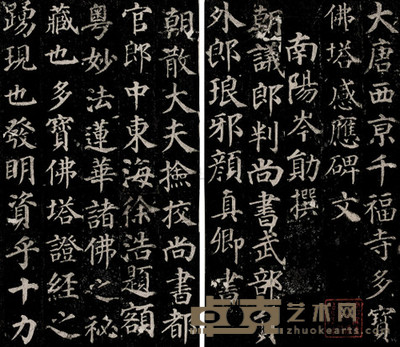 大唐西京千福寺多寶
佛塔感應碑文
南陽岑勛撰
朝議郎判尚書武部員
外郎琅邪顏真卿書
朝散大夫撿挍尚書都
官郎中東海徐浩題額
粵妙法蓮華諸佛之祕
藏也多寶佛塔證經之
踴現也發明資乎十力
卓克艺术网
zhuokearts.com